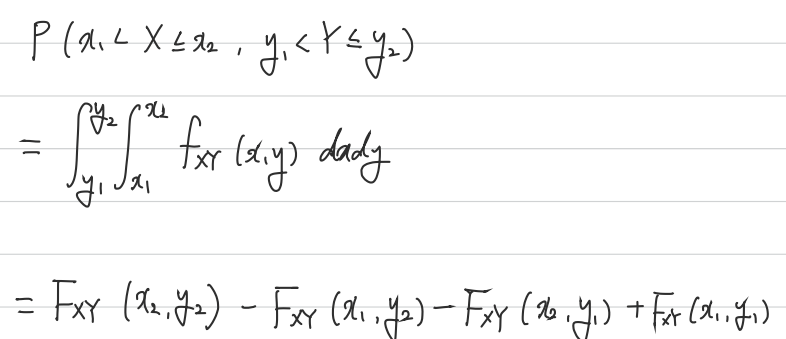 P(x₁ < X ≤ x₂, y₁ < Y ≤ y₂)
= ∫_{y₁}^{y₂} ∫_{x₁}^{x₂} f_{XY}(x,y) dxdy
= F_{XY}(x₂,y₂) - F_{XY}(x₁,y₂) - F_{XY}(x₂,y₁) + F_{XY}(x₁,y₁)